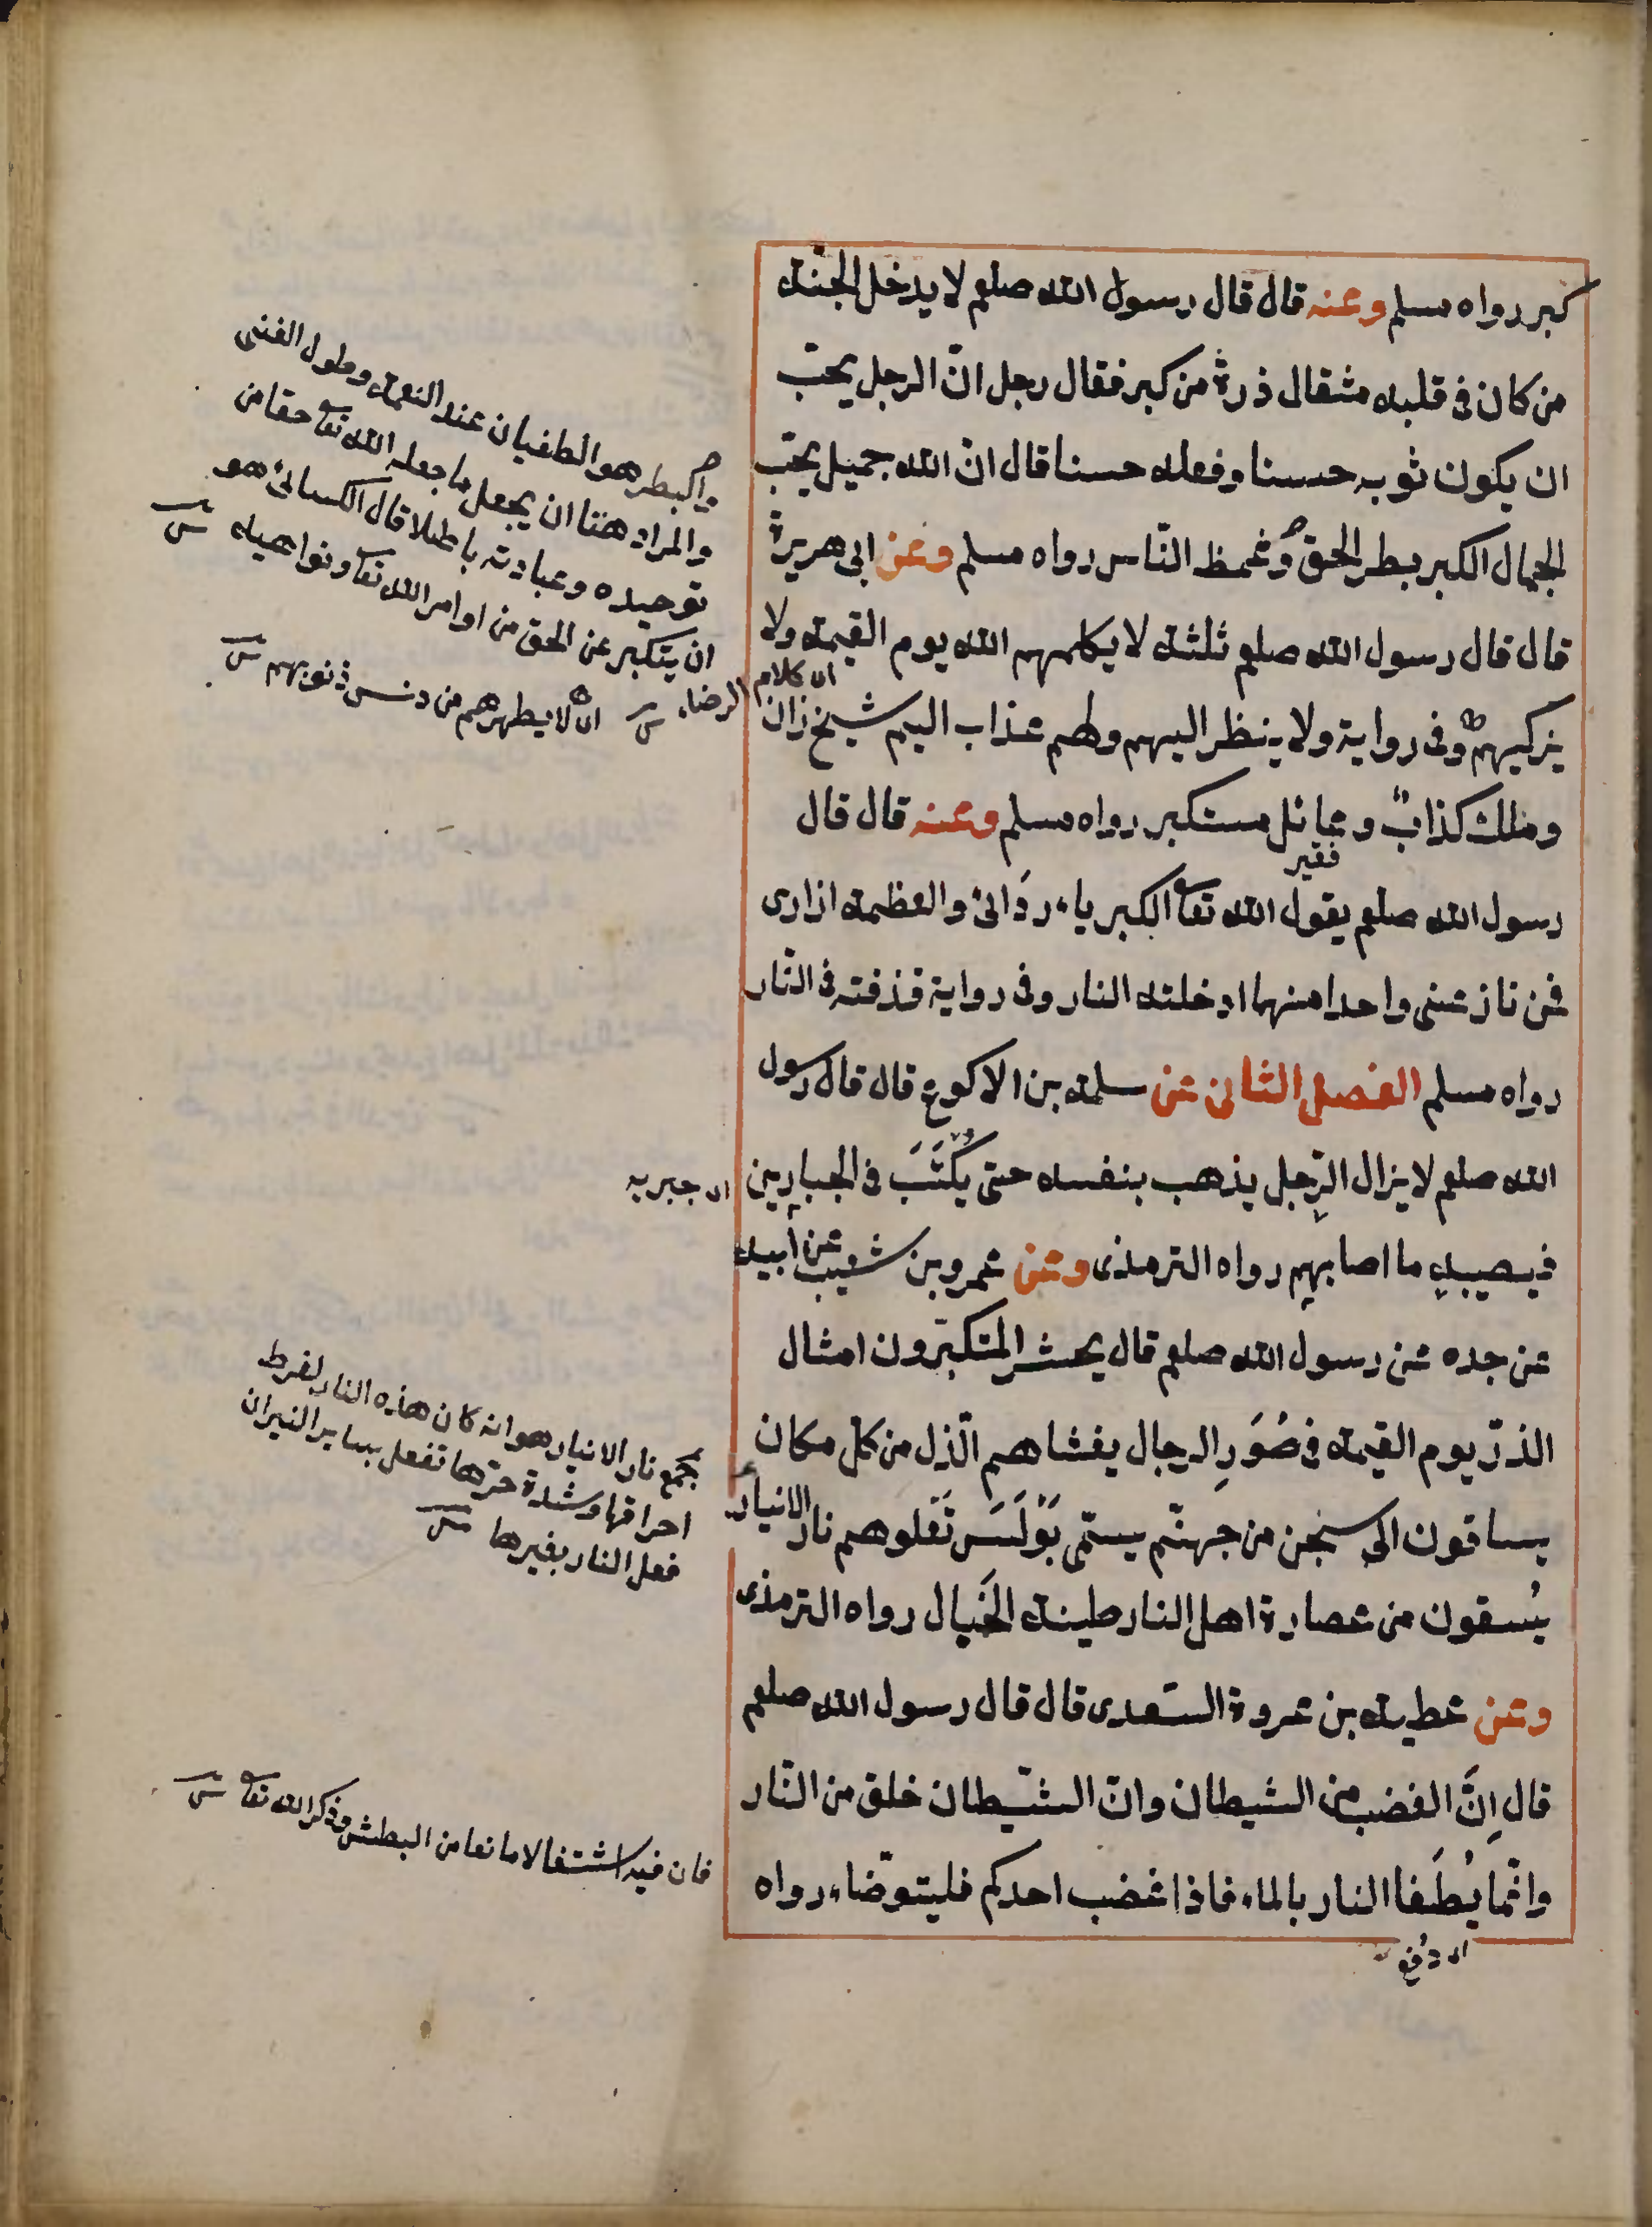 كبر رواه مسلم وعنه قال قال رسول الله صلعم لا يدخل الجنة
من كان فى قلبه مثقال ذرة من كبر فقال رجل انّ الرجل يحبّ
ان يكون ثوبه حسنا وفعله حسنا قال انّ الله جميل يحبّ
الجمال الكبر بطر الحق وغمظ النّاس رواه مسلم وعن ابى هريرة
قال قال رسول الله صلعم ثلثة لا يكلمهم الله يوم القيمة ولا
يزكيهم وفى رواية ولا ينظر اليهم ولهم عذاب اليم شيخ زان
وملك كذابٌ وعائل مستكبر رواه مسلم وعنه قال قال
فقير
رسول الله صلعم يقول الله تعا الكبرياء ردَائى والعظمة ازارى
فمن نازعنى واحدا منهما ادخلته النار وفى رواية قذفته فى النّار
رواه مسلم الفصل الثانى عن سلمة بن الاكوع قال قال رسول
الله صلعم لا يزال الرّجل يذهب بنفسه حتى يُكْتَبَ فى الجبارين
فيصيبه ما اصابهم رواه الترمذى وعن عمرو بن شعيب عن أبيه
عن جده عن رسول الله صلعم قال يحشر المتكبّرون امثال
الذرّ يوم القيمة فى صُوَرِ الرجال يغشاهم الذّل من كل مكان
يساقون الى سجن من جهنّم يسمّى بَوْلَسَ تَعْلوهم نار الانيار
يُسقون من عصارة اهل النار طينة الخَبال رواه الترمذى
وعن عطية بن عروة السّعدى قال قال رسول الله صلعم
قال اِنَّ الغضب من الشيطان وانّ الشّيطان خلق من النّار
وانّما يُطَفا النار بالماء فاذا غضب احدكم فليتوضّاء رواه
اى دفع
البطر هو الطغيان عند النعمة وطول الغنى
والمراد هنا ان يجعل ما جعله الله تعا حقا من
توحيده وعبادته باطلا قال الكسائى هو
ان يتكبر عن الحق من اوامر الله تعا ونواهيه
اى كلام الرضاء
اى لا يطهرهم من دنس ذنوبهم
اى جبريه
جمع نار الانيار هو انه كان هذه النار لفرط
احراقها وشدة حرّها تفعل بساير النيران
فعل النار بغيرها
فان فيه اشتغالا مانعا من البطش وذكر الله تعا